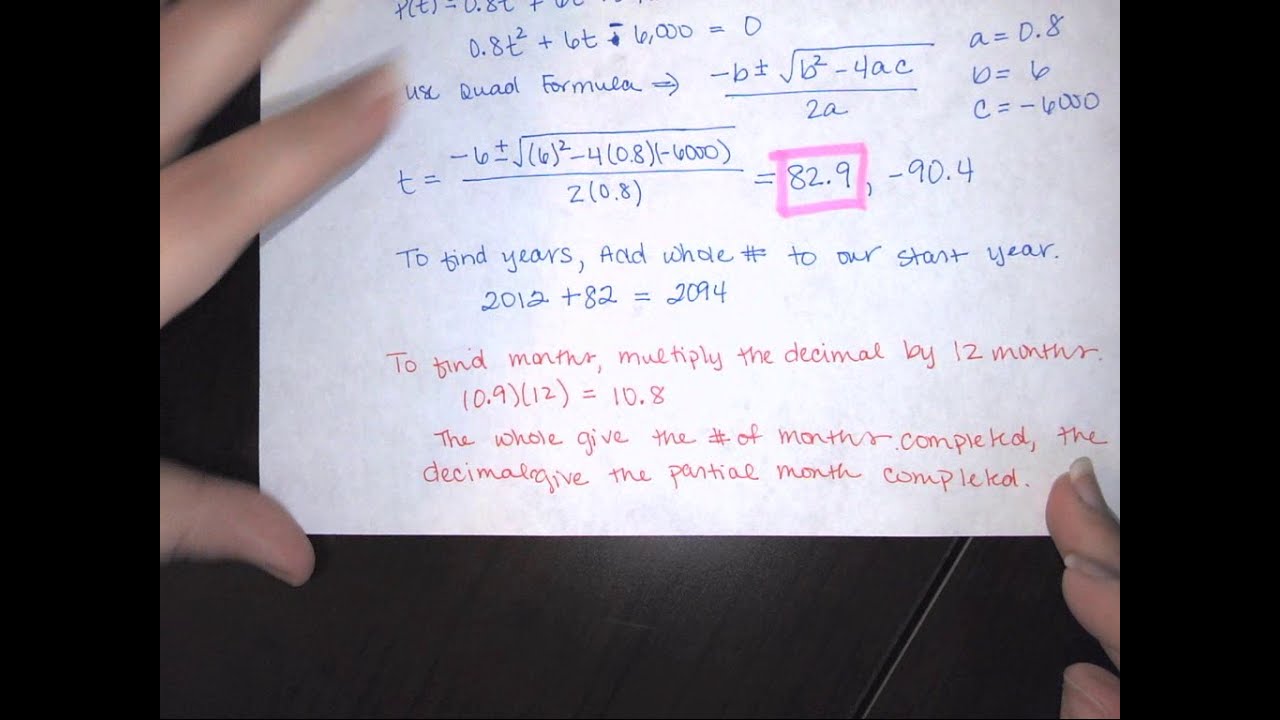 P(t) = 0.8t² + 6t
0.8t² + 6t - 6,000 = 0
use Quad Formula ⇒ -b ± √(b² - 4ac) / 2a
a = 0.8
b = 6
c = -6000
t = -6 ± √((6)² - 4(0.8)(-6000)) / 2(0.8) = 82.9, -90.4
To find years, Add whole # to our start year.
2012 + 82 = 2094
To find months, multiply the decimal by 12 months.
(0.9)(12) = 10.8
The whole give the # of months completed, the
decimal give the partial month completed.